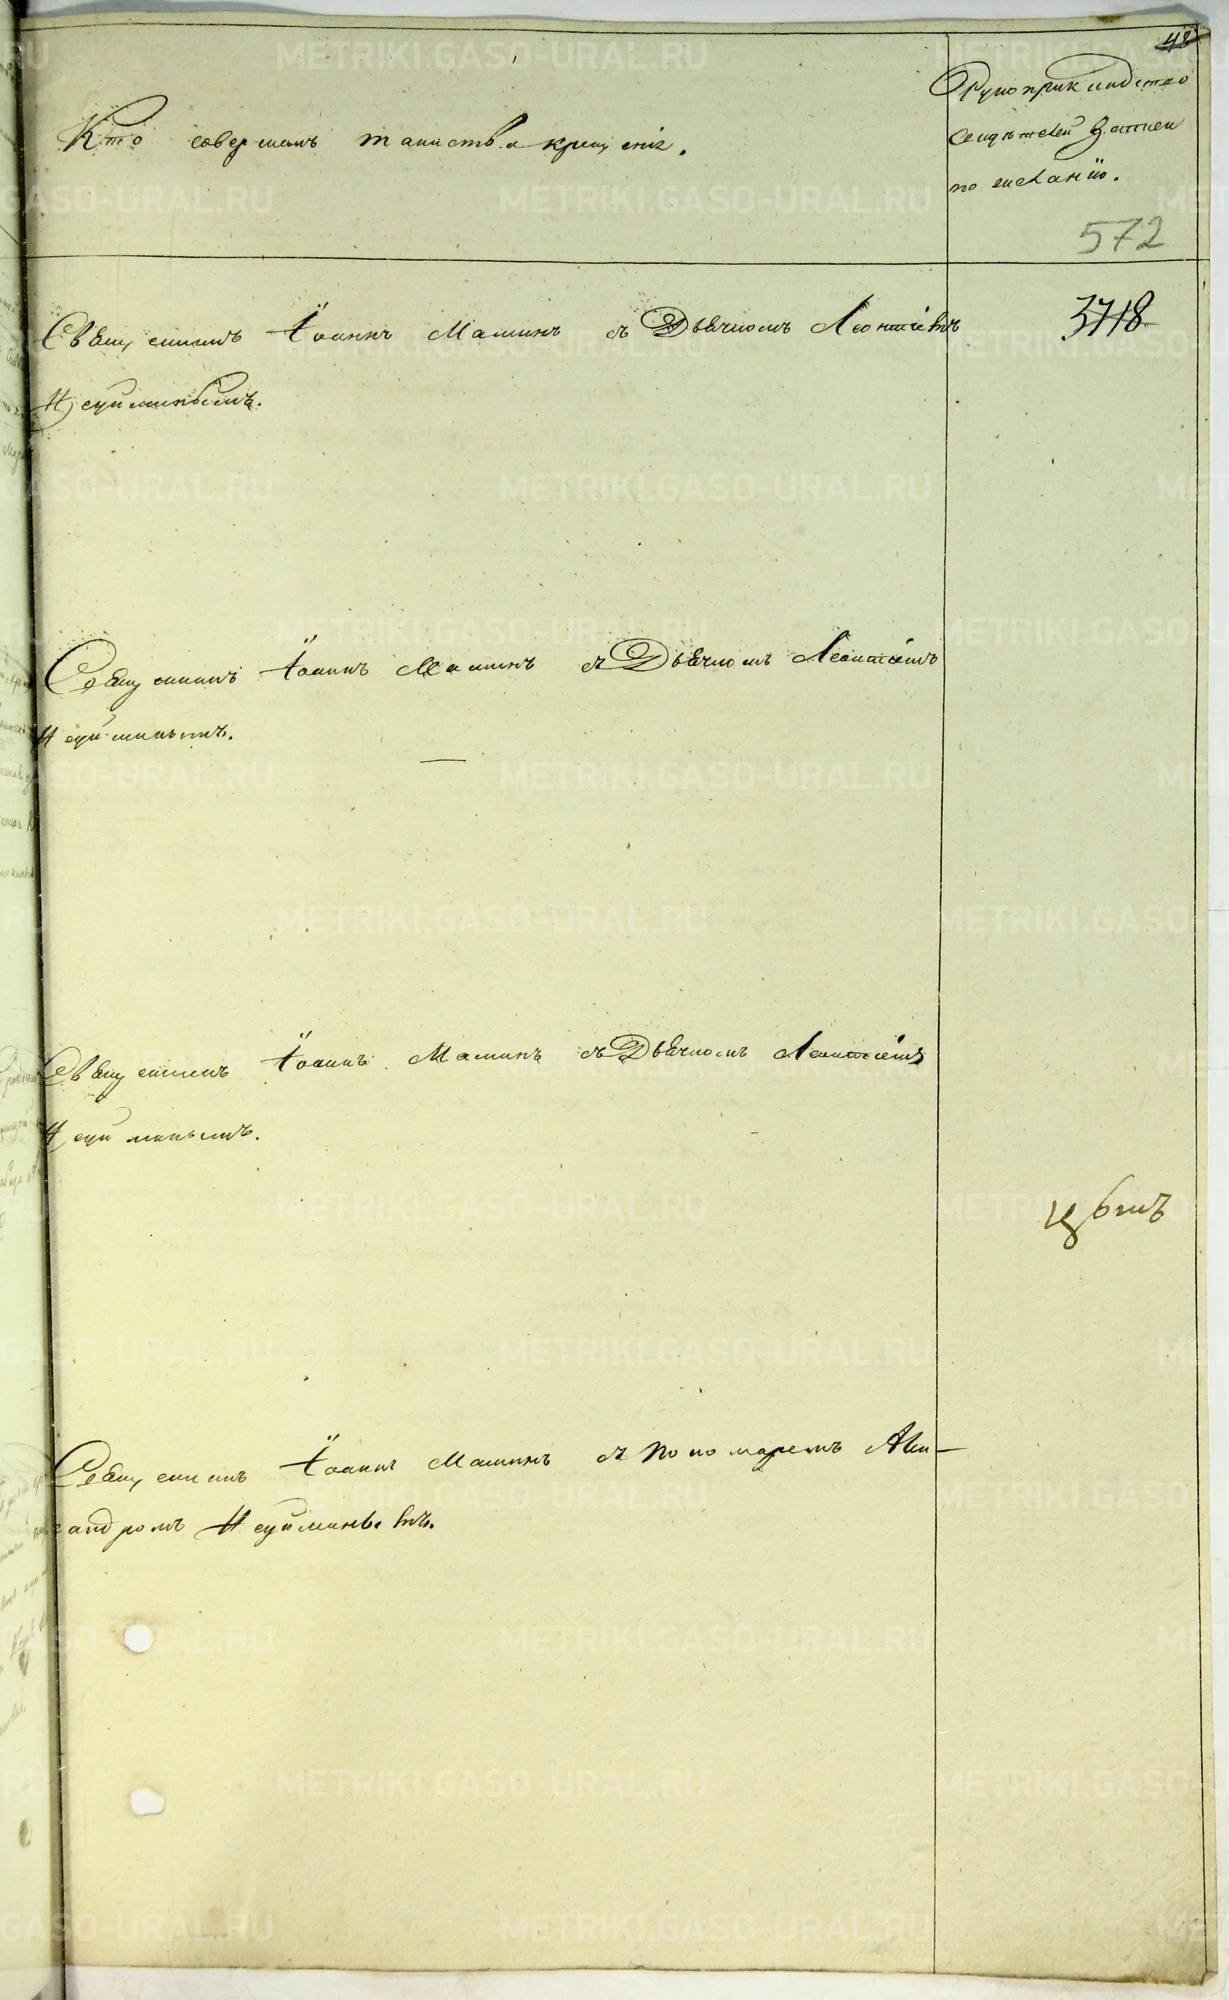 48
Кто совершалъ таинство крещенія.
Рукоприкладство
свидѣтелей записи
по желанію.
572
Священникъ Іоаннъ Маминъ съ Дьячкомъ Леонтіемъ
3718
Неуйминымъ.
Священникъ Іоаннъ Маминъ съ Дьячкомъ Леонтіемъ
Неуйминымъ.
Священникъ Іоаннъ Маминъ съ Дьячкомъ Леонтіемъ
Неуйминымъ.
Священникъ Іоаннъ Маминъ съ пономаремъ Алек-
сандромъ Неуйминымъ.